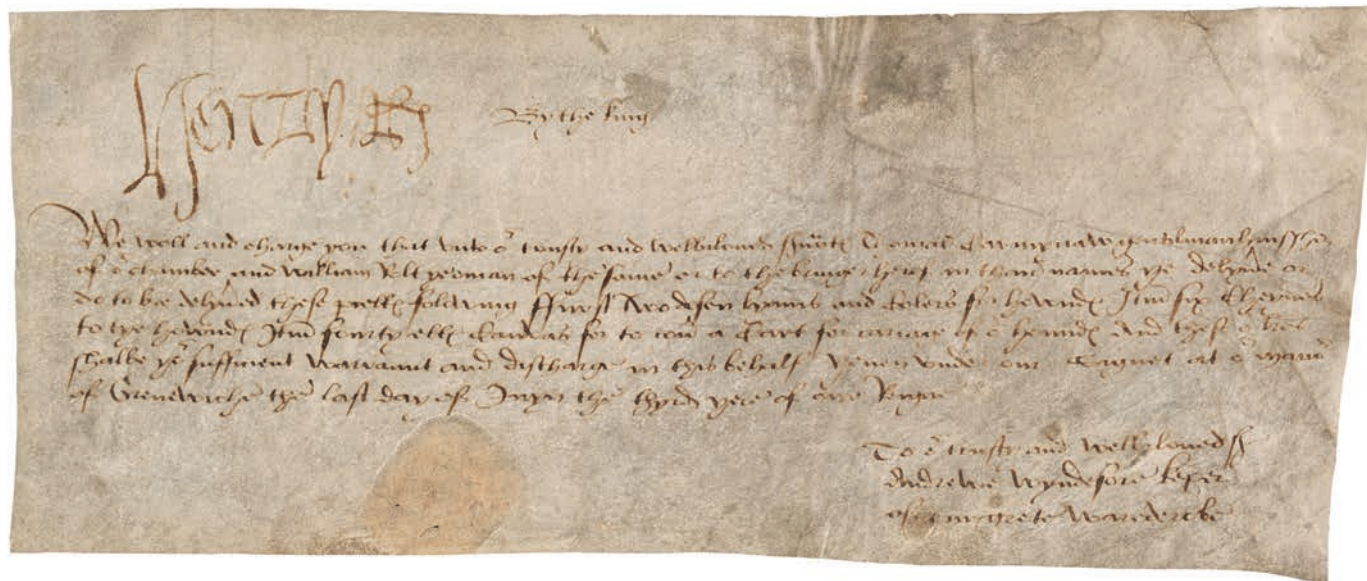 Henry R
By the king
We woll and charge you that unto oʳ trusty and welbiloved Thomas Carmynaw gentilman
of oʳ chamber and william Rolt yeoman of the same or to the bringer herof in thair names ye delyvre or
do to be delyvred these folowing ffurst two dosen lyams and colers for howndes Itm six Cheynes
to tye howndes Itm fourty elles Canvas for to cov a Cart for cariage of oʳ howndes And these oʳ lres
shalbe yoʳ sufficient warrant and discharge in this behalf yeven under our Signet at oʳ manoʳ
of Grenewiche the last day of the thyrd yere of oure Reigne
To oʳ trusty and welbyloved
Andrewe wyndesore keper
of our grete warederobe